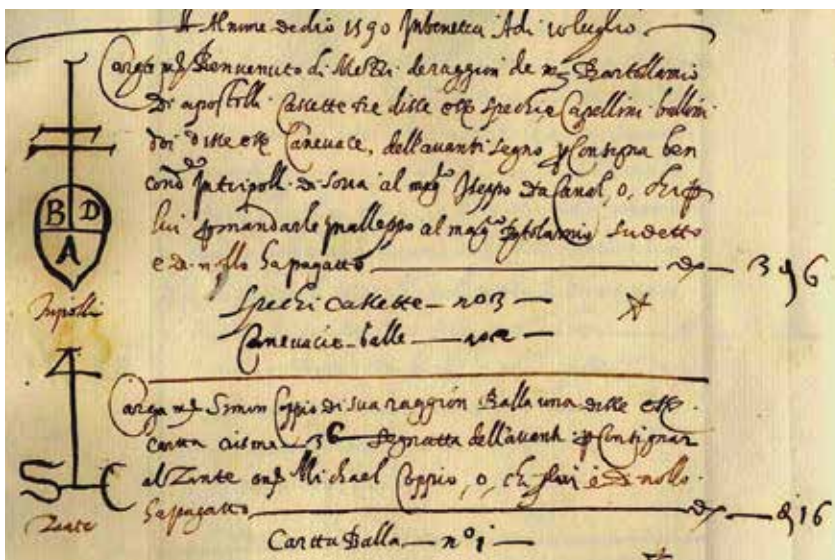 Al nome de dio 1590 In Venetia Adi 10 luglio
Carga mr Benvenuto di de raggion de mr Bartollamio
di apostoli Cassette tre disse esser specchi Capellini ballini
doi disse esser Canevace, dell'avanti segno p Consigna ben
cond In tripoli di soria al magco Iseppo da Canal, o, chi p
lui p mandarle al magco sudetto
e di nollo ha pagatto — 3 g 6
B D
A
Tripolli
Spechi cassette — no 3 —
Canevacie balle — no 2
Carga mr Simon Coppio di sua raggion Balla una disse esser
carta 36 segnatta dell'avanti p Consignar
al Zante mr Michael Coppio, o, chi e di nollo
ha pagatto — g 16
S C
Zante
Carta Balla — no 1 —